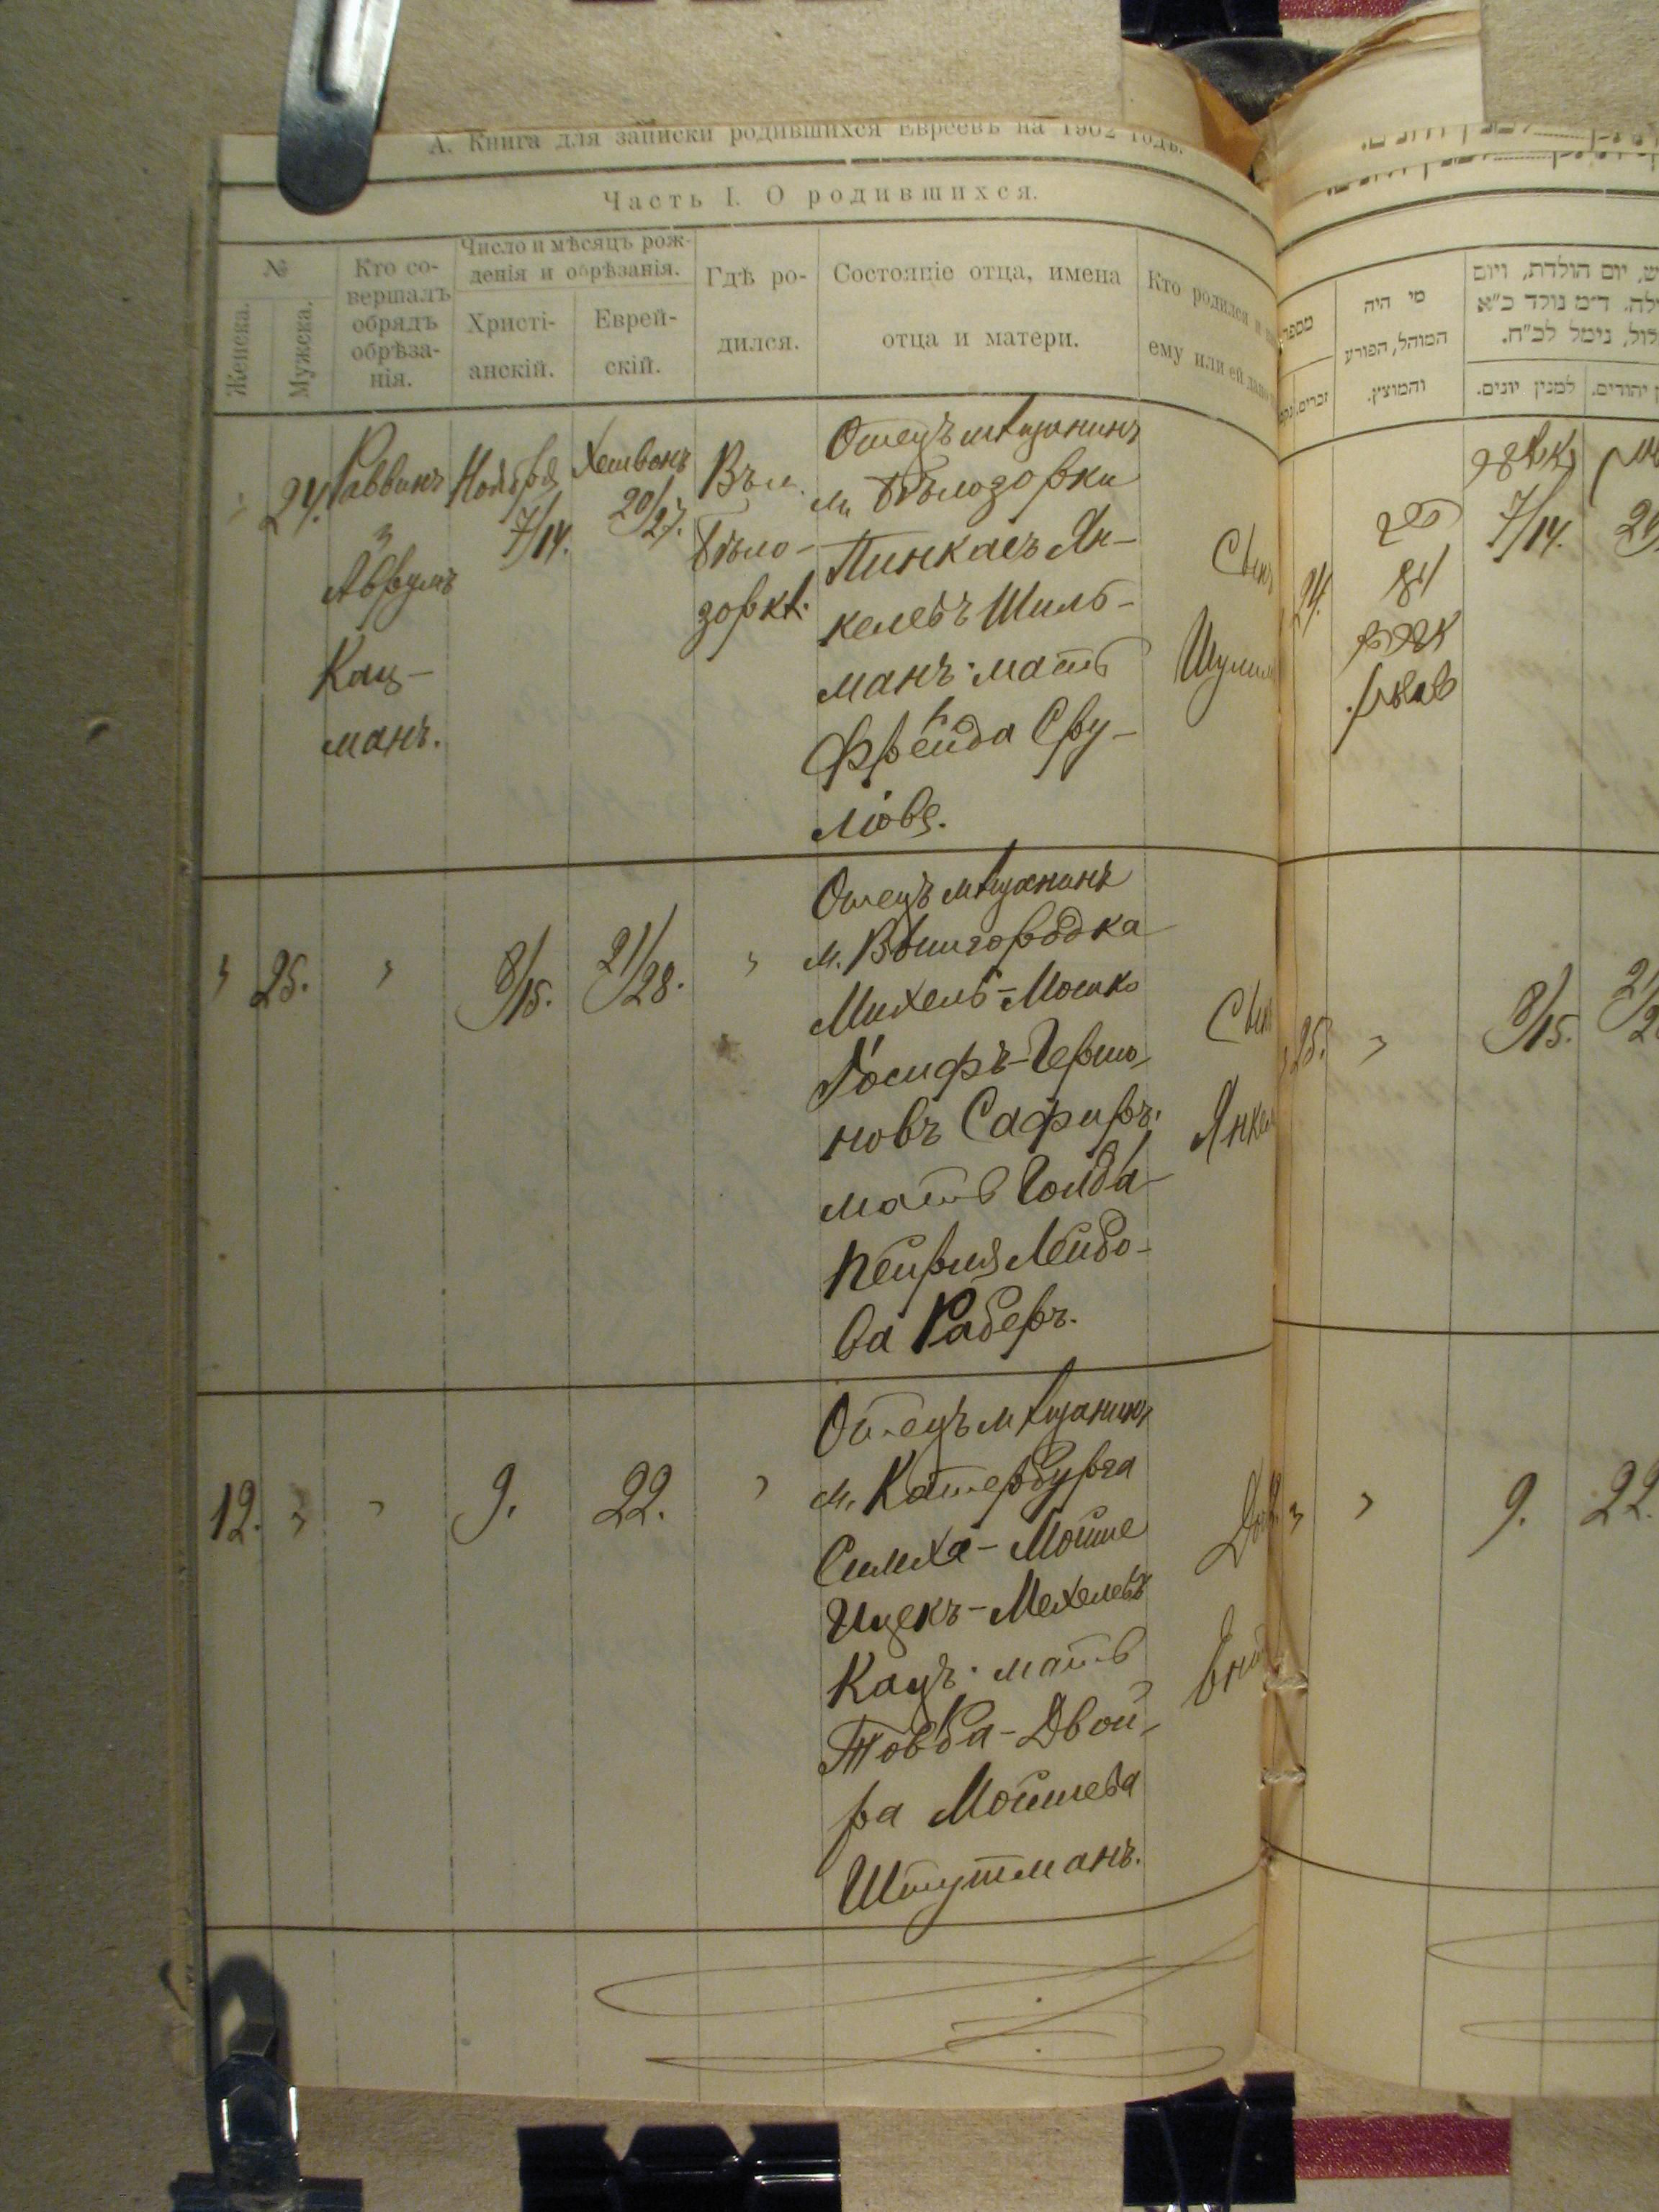 А. Книга для записки родившихся Евреевъ на 1902 годъ.
Часть I. О родившихся.
№
Женска.
Мужска.
Кто со-
вершалъ
обрядъ
обрѣза-
нія.
Число и мѣсяцъ рож-
денія и обрѣзанія.
Христі-
анскій.
Еврей-
скій.
Гдѣ ро-
дился.
Состояніе отца, имена
отца и матери.
Кто родился и
ему или ей дано
24.
Раввинъ
Аврумъ
Кац-
манъ.
Ноября
7/14.
Хешвонъ
20/27.
Въ м.
Бѣло-
зоркѣ.
Отецъ мѣщанинъ
м. Бѣлозорки
Пинкасъ Ян-
келевъ Шиль-
манъ. мать
Фрейда Сру-
Сын
Шулим
25.
8/15.
21/28.
Отецъ мѣщанинъ
м. Вышгородка
Михель-Мошко
Іосифъ-Гершо-
новъ Сафиръ.
мать Голда-
Пейрля Лейбо-
ва Раберъ.
Сын
Янкел
12.
9.
22.
Отецъ мѣщанинъ
м. Катербурга
Симха-Мойше
Ицекъ-Мехелевъ
Кацъ. мать
Товба-Двой-
ра Мойшева
Штутманъ.
מספר
זכרים
מי היה
המוהל, הפורע
והמוצץ.
יום הולדת, ויום
ד״מ נולד כ״א
נימל לכ״ח.
למנין יונים.
יהודים.
24.
7/14.
25.
8/15.
9.
22.